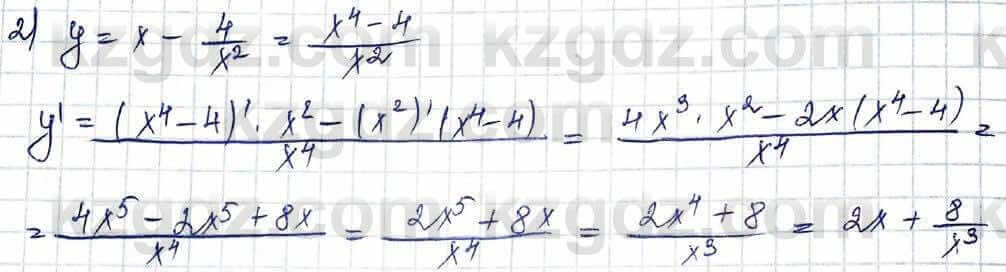 2) y = x - 4/x² = (x⁴ - 4)/x²
y' = ((x⁴ - 4)' · x² - (x²)' (x⁴ - 4))/x⁴ = (4x³ · x² - 2x(x⁴ - 4))/x⁴ =
= (4x⁵ - 2x⁵ + 8x)/x⁴ = (2x⁵ + 8x)/x⁴ = (2x⁴ + 8)/x³ = 2x + 8/x³
kzgdz.com kzgdz.com k
kzgdz.com kzgdz.com k
kzgdz.com kzgdz.com k